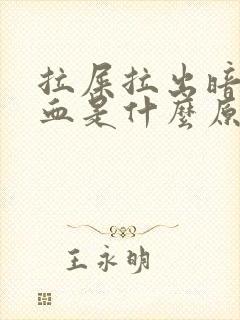 拉屎拉出暗
血是什麼原
王永明